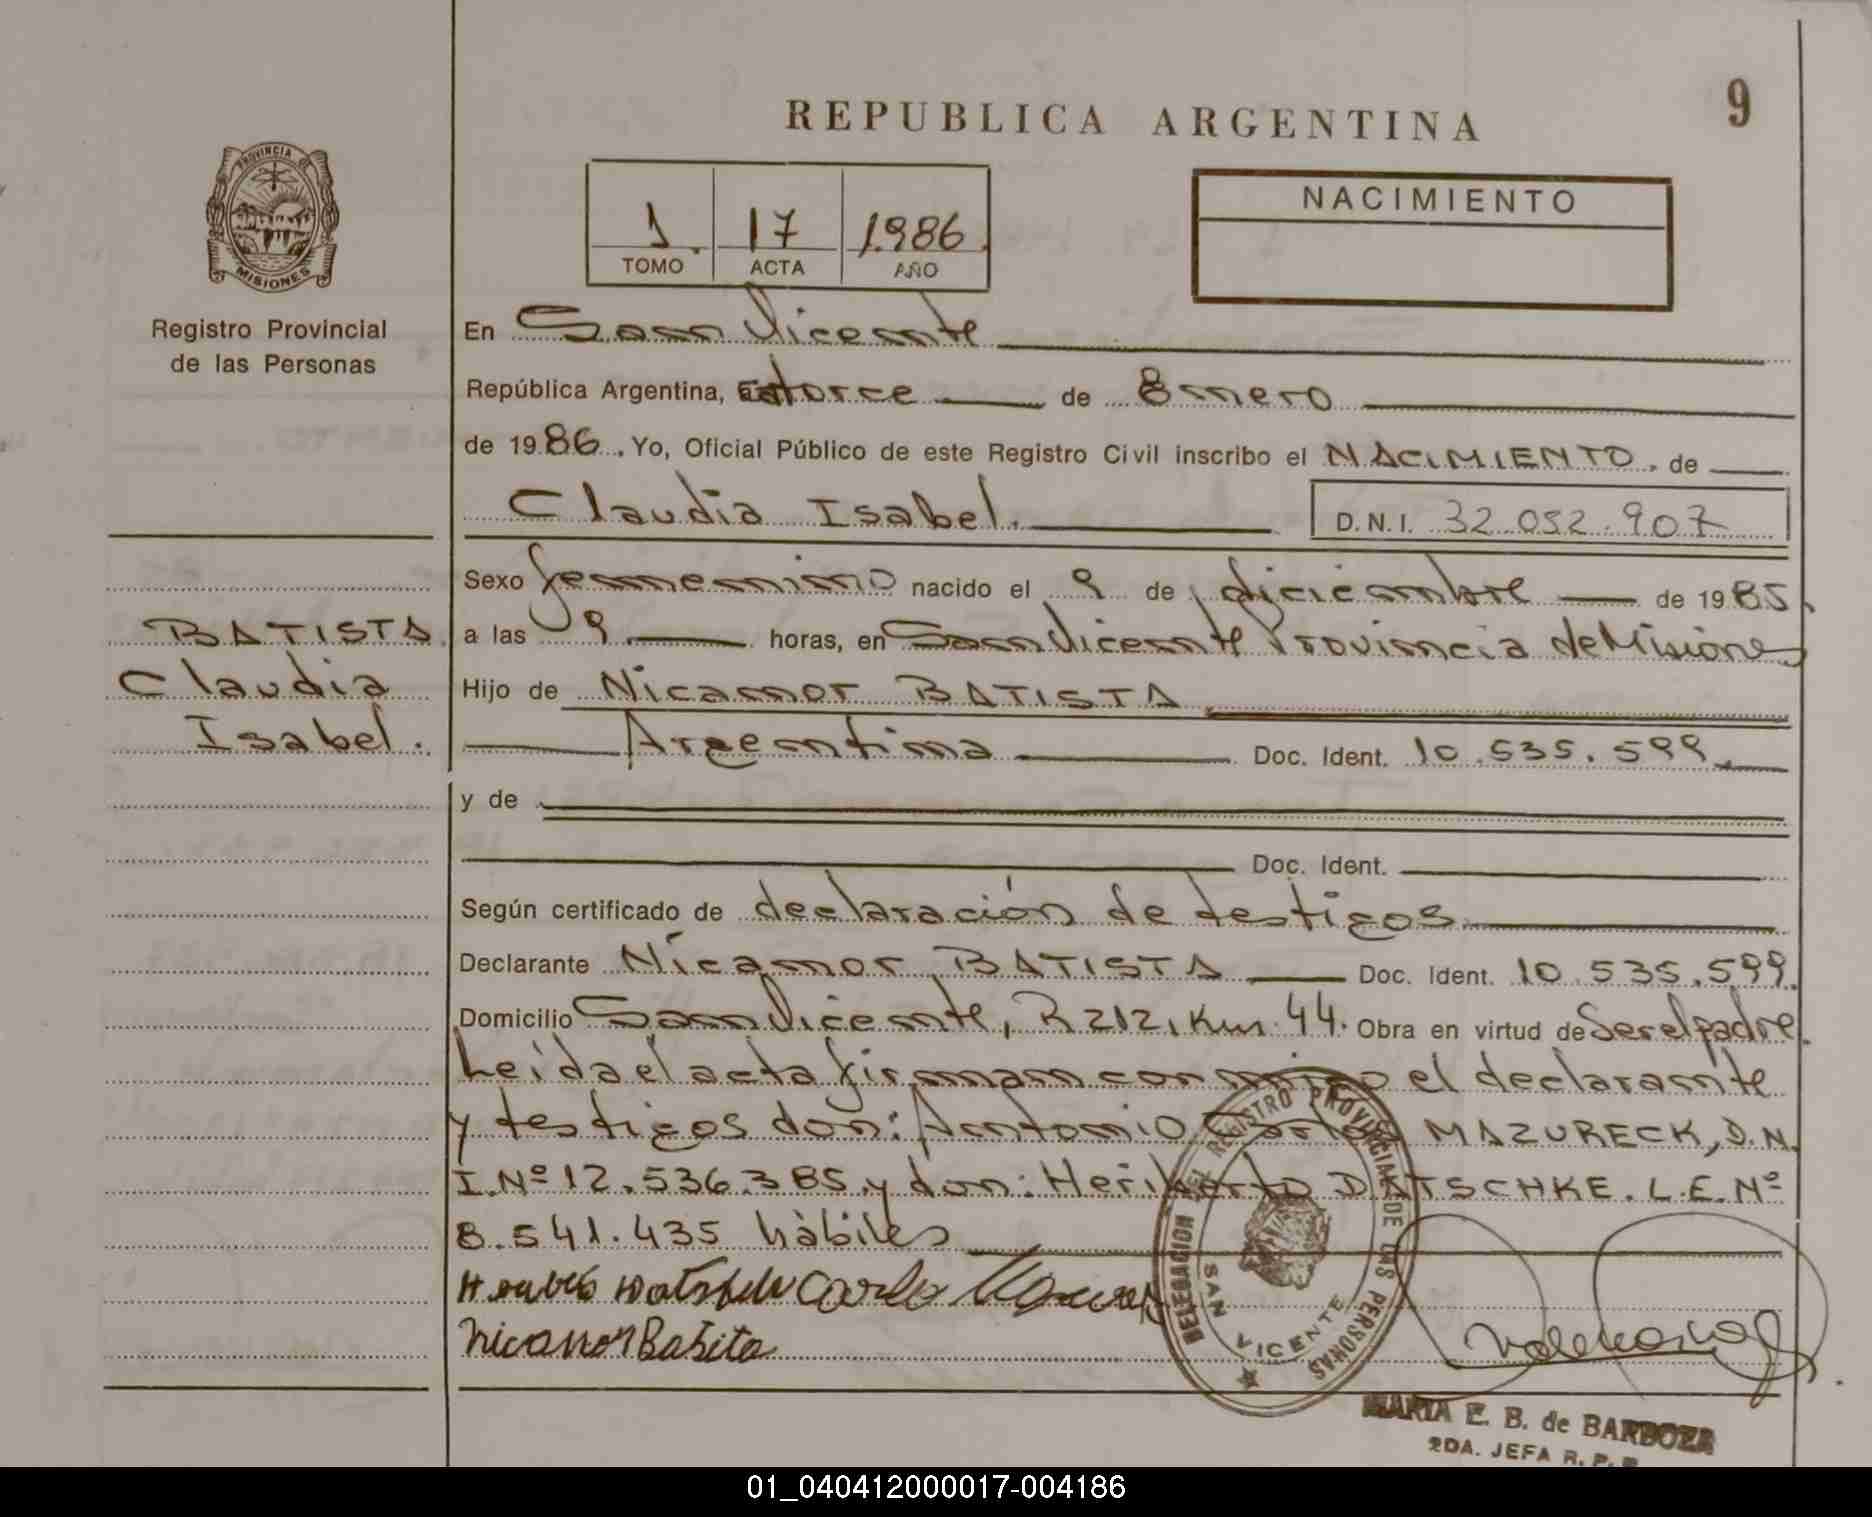 9
REPUBLICA ARGENTINA
PROVINCIA
MISIONES
Registro Provincial
de las Personas
1 17 1986
TOMO ACTA AÑO
NACIMIENTO
En San Vicente
República Argentina, catorce de Enero
de 1986. Yo, Oficial Público de este Registro Civil inscribo el NACIMIENTO. de
Claudia Isabel. D.N.I. 32.052.907
BATISTA
Claudia
Isabel.
Sexo femenino nacido el 9 de diciembre de 1985
a las 9 horas, en San Vicente Provincia de Misiones
Hijo de Nicanor BATISTA
Argentina Doc. Ident. 10.535.599
y de
Doc. Ident.
Según certificado de declaración de testigos
Declarante Nicanor BATISTA Doc. Ident. 10.535.599.
Domicilio San Vicente, R 212, Km. 44. Obra en virtud de Ser el padre.
Leída el acta firman conmigo el declarante
y testigos don: Antonio Carlos MAZURECK, D.N.
I. Nº 12.536.385 y don: Heriberto DATSCHKE. L.E. Nº
8.541.435 hàbiles
Nicanor Batista
DELEGACION DEL REGISTRO PROVINCIAL DE LAS PERSONAS
SAN VICENTE
MARIA E. B. de BARBOZA
2DA. JEFA R. P. P.
01_040412000017-004186